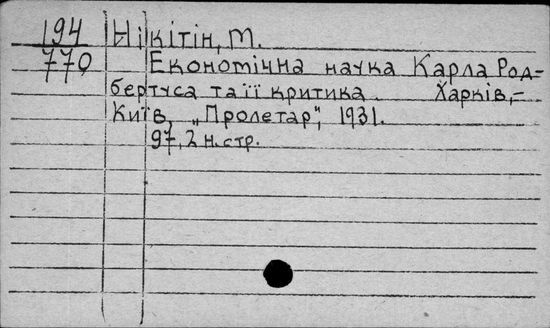 194 Нікітін, М.
770 Економічна наука Карла Род-
бертуса та її критика. Харків,-
Київ, „Пролетар", 1931.
97, 2 н. стр.